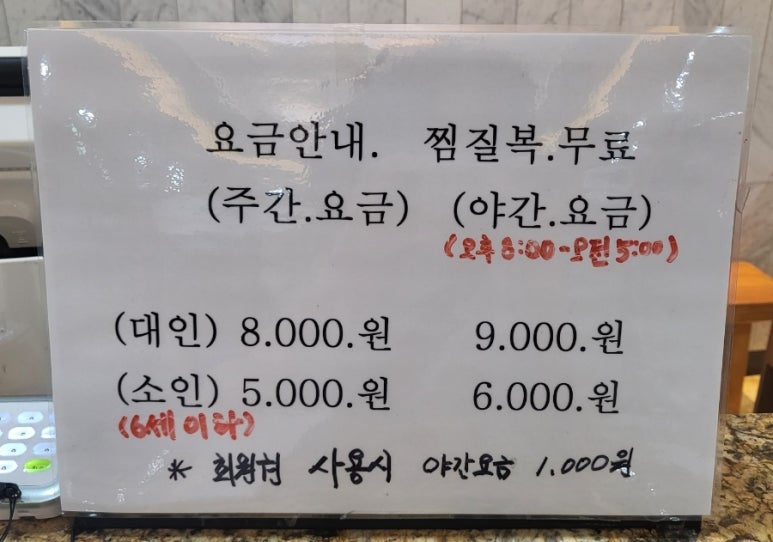 요금안내. 찜질복.무료
(주간.요금) (야간.요금)
(오후8:00-오전5:00)
(대인) 8.000.원 9.000.원
(소인) 5.000.원 6.000.원
(6세이하)
* 회원권 사용시 야간요금 1.000원